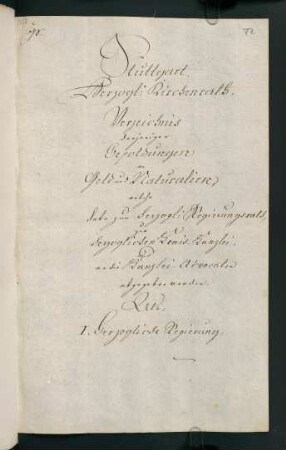 72
Stuttgart.
Herzogl: Kirchenrath.
Verzeichnis
derjenigen
Besoldungen
an
Geld und Naturalien,
welche
zum Herzogl: Regierungsrath,
zur
Herzoglichen Canzlei,
und
Canzlei-Advocaten
abgegeben werden.
I. Herzogliche Regierung.